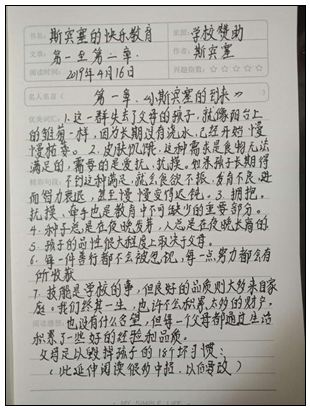 书名: 斯宾塞的快乐教育
来源: 学校赞助
文章: 第一至第二章.
作者: 斯宾塞
阅读时间: 2019年4月16日
兴趣指数: ☆☆☆☆☆
名人名言(第一章. 小斯宾塞的到来》
优美词汇: 1.这一群失去了母亲的孩子, 就像阳台上
的雏菊一样, 因为长期没有浇水, 已经开始慢
慢枯萎。2. 皮肤饥饿.这种需求是食物无法
满足的, 需要的是爱抚、抚摸。如果孩子长期得
不到这种满足, 就会食欲不振、发育不良、进
而智力衰退, 甚至慢慢变得迟钝。3 拥抱。
抚摸、牵手也是教育中不可缺少的重要部分。
4. 种子总是在夜晚发芽, 人总是在夜晚长高的
5. 孩子的品性很大程度上取决于父母。
6. 每一件善行都不会被忽视, 每一点努力都会有
所收获
7. 技能是学校的事, 但良好的品质则大多来自家
庭。我们终其一生, 也许不会积累太多的财产,
也没有什么名望, 但每一个父母都通过生活
积累了一些好的经验和品质.
父母足以毁掉孩子的18个坏习惯:
(此延伸阅读很为中控. 以向导改)
MY SIMPLE LIFE